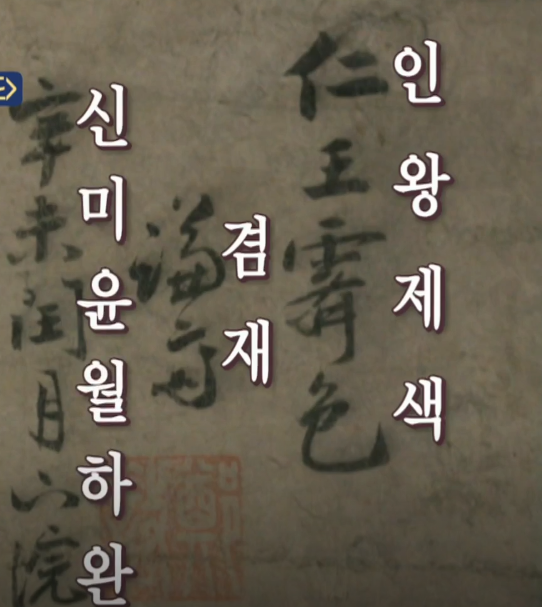 仁王霽色
인왕제색
謙齋
겸재
辛未閏月下浣
신미윤월하완